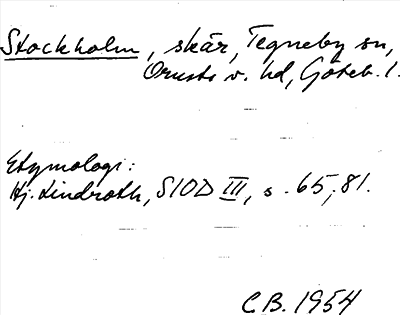 Stockholm, skär, Tegneby sn,
Orusts v. hd, Göteb. l.
Etymologi:
Hj. Lindroth, SIOD III, s. 65, 81.
C.B. 1954